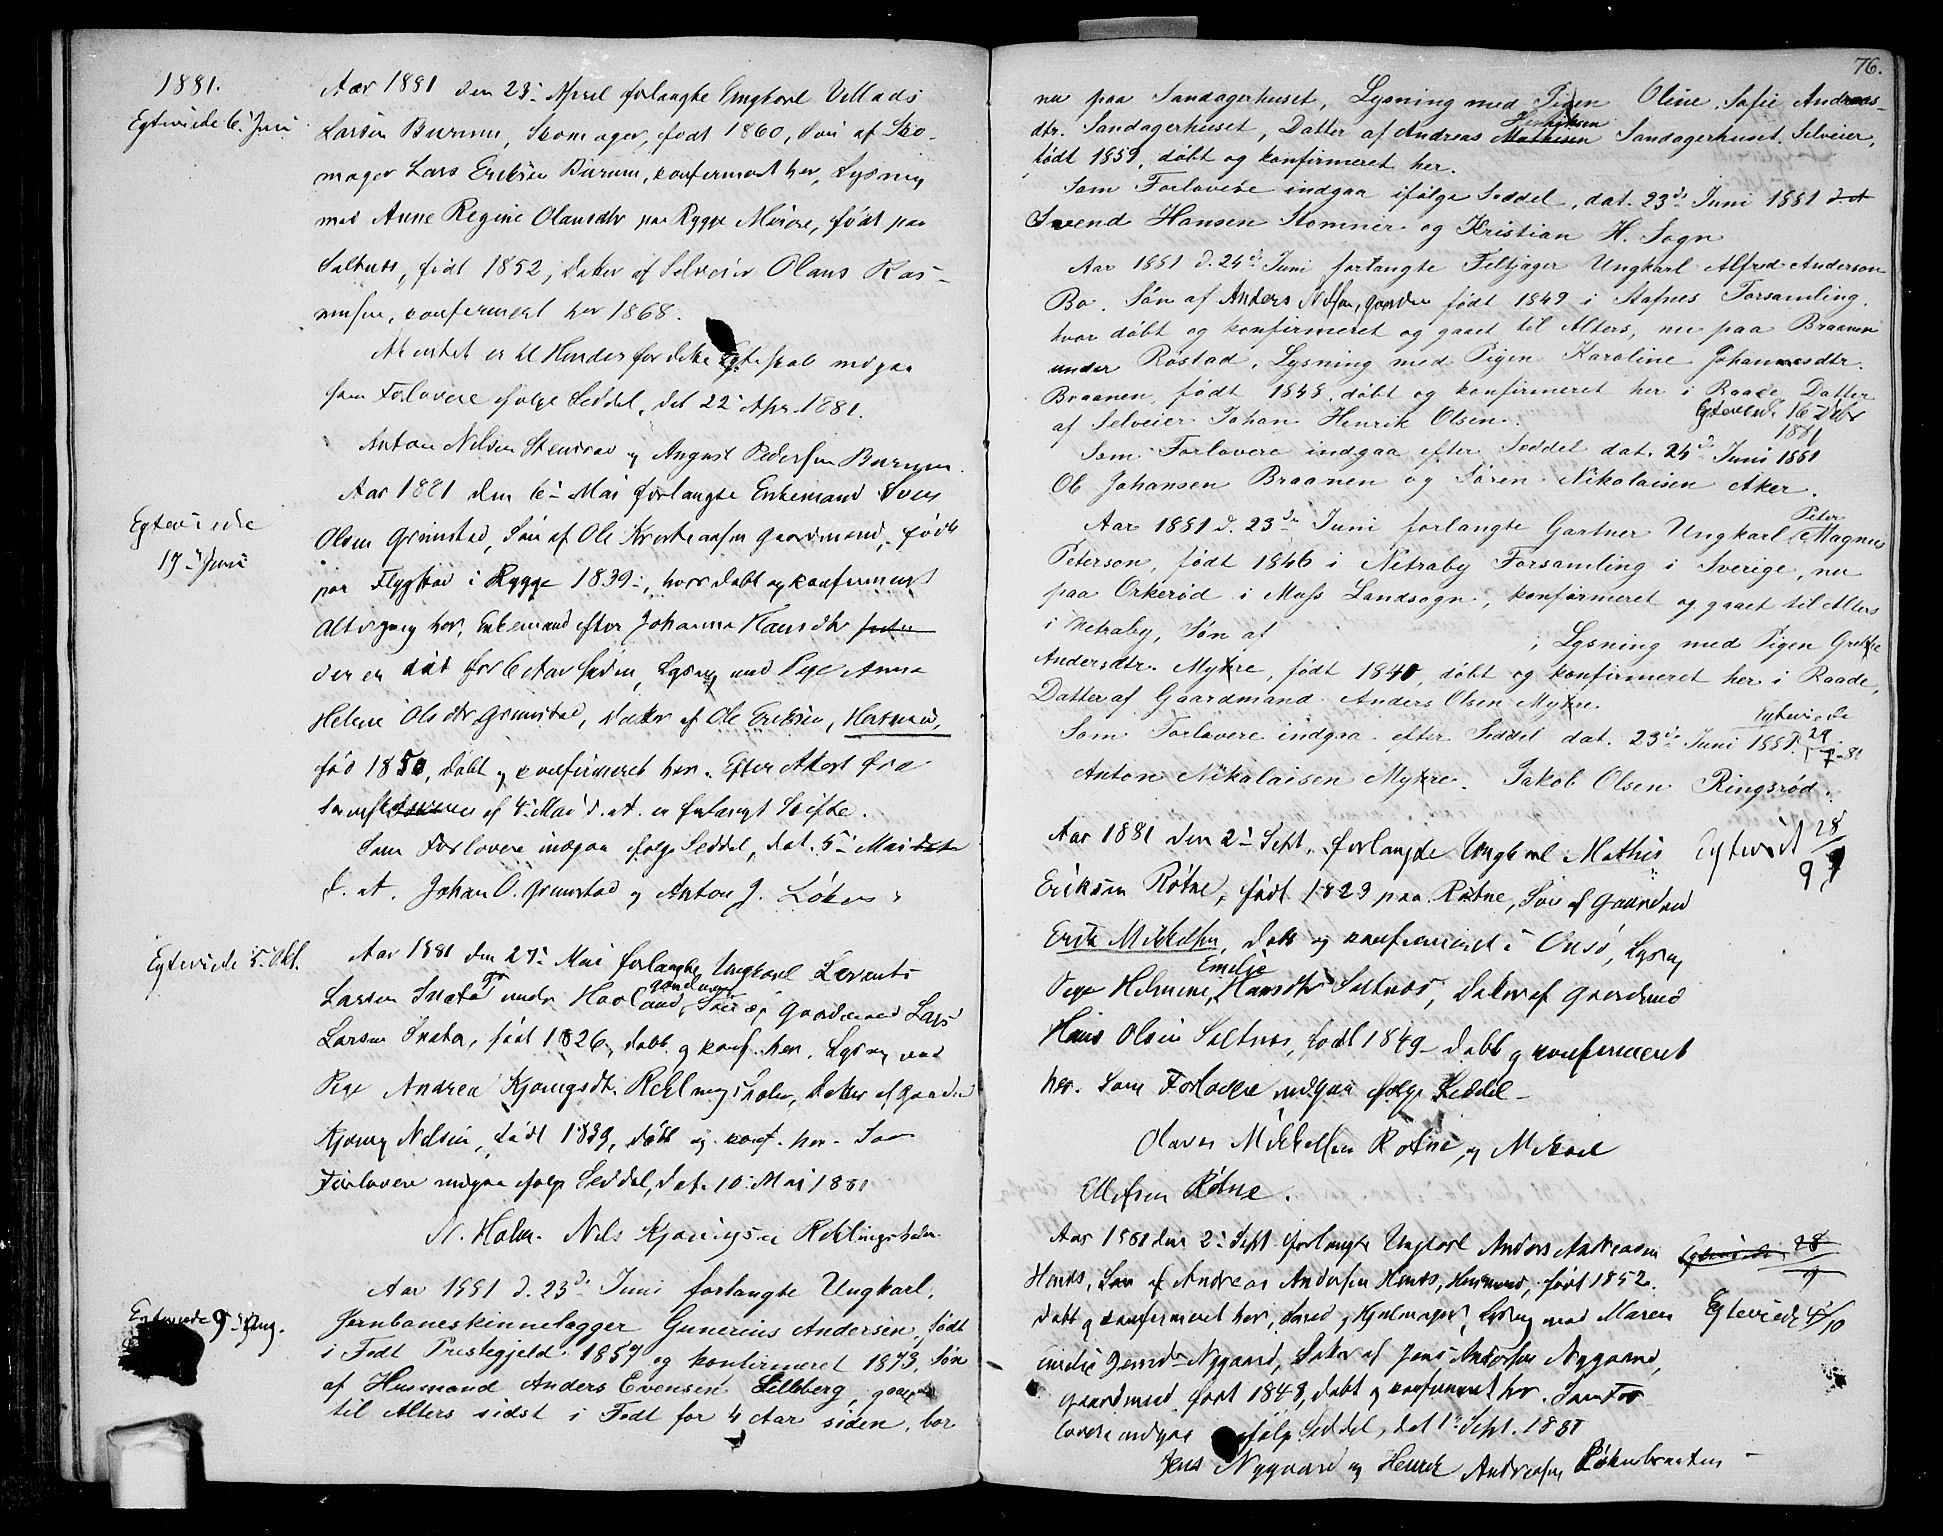 1881.
Egteviede 6. Juni
Aar 1881 den 23. April forlangte Ungkarl Villads
Larsen Burum, Skomager, født 1860, Søn af Sko-
mager Lars Eriksen Burum, konfirmeret her, Lysning
med Anne Regine Olausdtr paa Rygge Meiore, født paa
Saltnes, født 1852, Datter af Selveier Olaus Ras-
musen, konfirmert her 1868.
At intet er til Hinder for dette Egteskab indgaa
som Forlovere ifølge Seddel, dat 22 Apr. 1881.
Anton Nilsen Stensrød og August Pedersen Burum.
Egteviede
17 Juni
Aar 1881 den 6 Mai forlangte Enkemand Sven
Olsen Grimstad, Søn af Ole Kristiansen Gaardmand, født
paa Flyghov i Rygge 1839, hvor døbt og konfirmert
Altergang her, Enkemand efter Johanna Hansdtr
der er død for 6 Aar siden, Lysning med Pige Anna
Helene Olsdtr Grimstad, Datter af Ole Eriksen, Husmand,
fød 1850, døbt og konfirmeret her. Efter Attest fra
af 4 Mai d. A. er forlangt Skifte.
Som Forlovere indgaa ifølge Seddel, dat. 5 Mai
d. A. Johan O. Grimstad og Anton J. Løken
Egteviede 5. Okt.
Aar 1881 den 27 Mai forlangte Ungkarl Lorents
Larsen Snata under Haaland, Søn af Gaardmand Lars
Larsen Snata, født 1826, døbt og konf. her. Lysning med
Pige Andrea Kjønigsdt. Reklingsholen, Datter af Gaardm
Kjønig Nilsen, født 1839, døbt og konf. her. Som
Forlovere indgaa ifølge Seddel, dat. 10 Mai 1881
N. Holm. Nils Kjønigsen Reklingsholen
Egteviede 9 Aug.
Aar 1881 d. 23de Juni forlangte Ungkarl,
Jernbaneskinnelægger Gunerius Andersen, født
i Fedt Præstegjeld 1857 og konfirmeret 1873, Søn
af Husmand Anders Evensen Lilleberg, gaaet
til Alters sidst i Fedt for 4 Aar siden, bor
76.
nu paa Sandagerhuset, Lysning med Pigen Oline Sofie Andreas-
dtr. Sandagerhuset, Datter af Andreas Henriksen Mathisen Sandagerhuset, Selveier,
født 1859, døbt og konfirmeret her.
Som Forlovere indgaa ifølge Seddel, dat. 23de Juni 1881 d. A
Svend Hansen Komnes og Kristian H. Sogn
Aar 1881 d. 24de Juni forlangte Feltjæger Ungkarl Alfred Anderson
Bo. Søn af Anders Nilsen, gaardm født 1849 i Stafnes Forsamling,
hvor døbt og konfirmeret og gaaet til Alters, nu paa Braanen
under Røstad, Lysning med Pigen Karoline Johannesdtr.
Braanen, født 1848, døbt og konfirmeret her i Raade, Datter
af Selveier Johan Henrik Olsen.
Egteviede 16 Dcbr
1881
Som Forlovere indgaa efter Seddel dat. 24de Juni 1881
Ole Johansen Braanen og Søren Nikolaisen Aker.
Aar 1881 d. 23de Juni forlangte Gartner Ungkarl Peter Magnus
Peterson, født 1846 i Netraby Forsamling i Sverige, nu
paa Orkerød i Moss Landsogn, konfirmeret og gaaet til Alters
i Netraby, Søn af , Lysning med Pigen Grette
Andersdtr. Mykre, født 1840, døbt og konfirmeret her i Raade,
Datter af Gaardmand Anders Olsen Mykre.
Egteviede
29/7-81
Som Forlovere indgaa efter Seddel dat. 23de Juni 1881.
Anton Nikolaisen Mykre. Jakob Olsen Ringsrød.
Aar 1881 den 2 Sept. forlangte Ungkarl Mathis
Egteviet 28/9
Eriksen Røtne, født 1823 paa Røtne, Søn af Gaardmd
Erik Mikkelsen, døbt og konfirmeret i Onsø, Lysning
Pige Helmine Emelie Hansdtr Saltnes, Datter af Gaardmd
Hans Olsen Saltnes, født 1849, døbt og konfirmeret
her. Som Forlovere indgaa ifølge Seddel
Olaves Mikkelsen Røtne, og Mikael
Ellefsen Røtne.
Aar 1881 den 2 Sept forlangte Ungkarl Anders Andreasen
Egteviede 28/9
Henæs, Søn af Andreas Andersen Henæs, Husmand, født 1852.
døbt og konfirmeret her, Smed og Hjulmager, Lysning med Maren
Egteviede 4/10
Emelie Jensdtr Nygaard, Datter af Jens Andersen Nygaard,
Gaardmand, født 1848, døbt og konfirmeret her. Som For
lovere indgaa ifølge Seddel, dat 1 Sept. 1881
Jens Nygaard og Henrik Andreasen Løkenbraaten